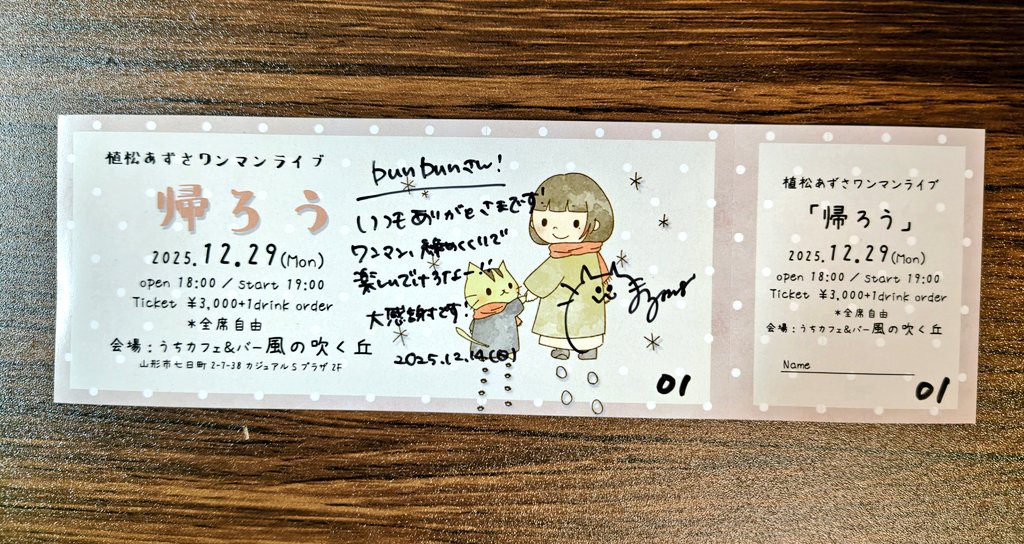 植松あずさワンマンライブ
帰ろう
2025.12.29(Mon)
open 18:00 / start 19:00
Ticket ¥3,000+1drink order
*全席自由
会場:うちカフェ&バー風の吹く丘
山形市七日町 2-7-38 カジュアルSプラザ 2F
bunbunさん!
いつもありがとさまです!
ワンマン、締めくくりで
大感謝です!
2025.12.14(日)
01
植松あずさワンマンライブ
「帰ろう」
2025.12.29(Mon)
open 18:00 / start 19:00
Ticket ¥3,000+1drink order
*全席自由
会場:うちカフェ&バー風の吹く丘
Name
01